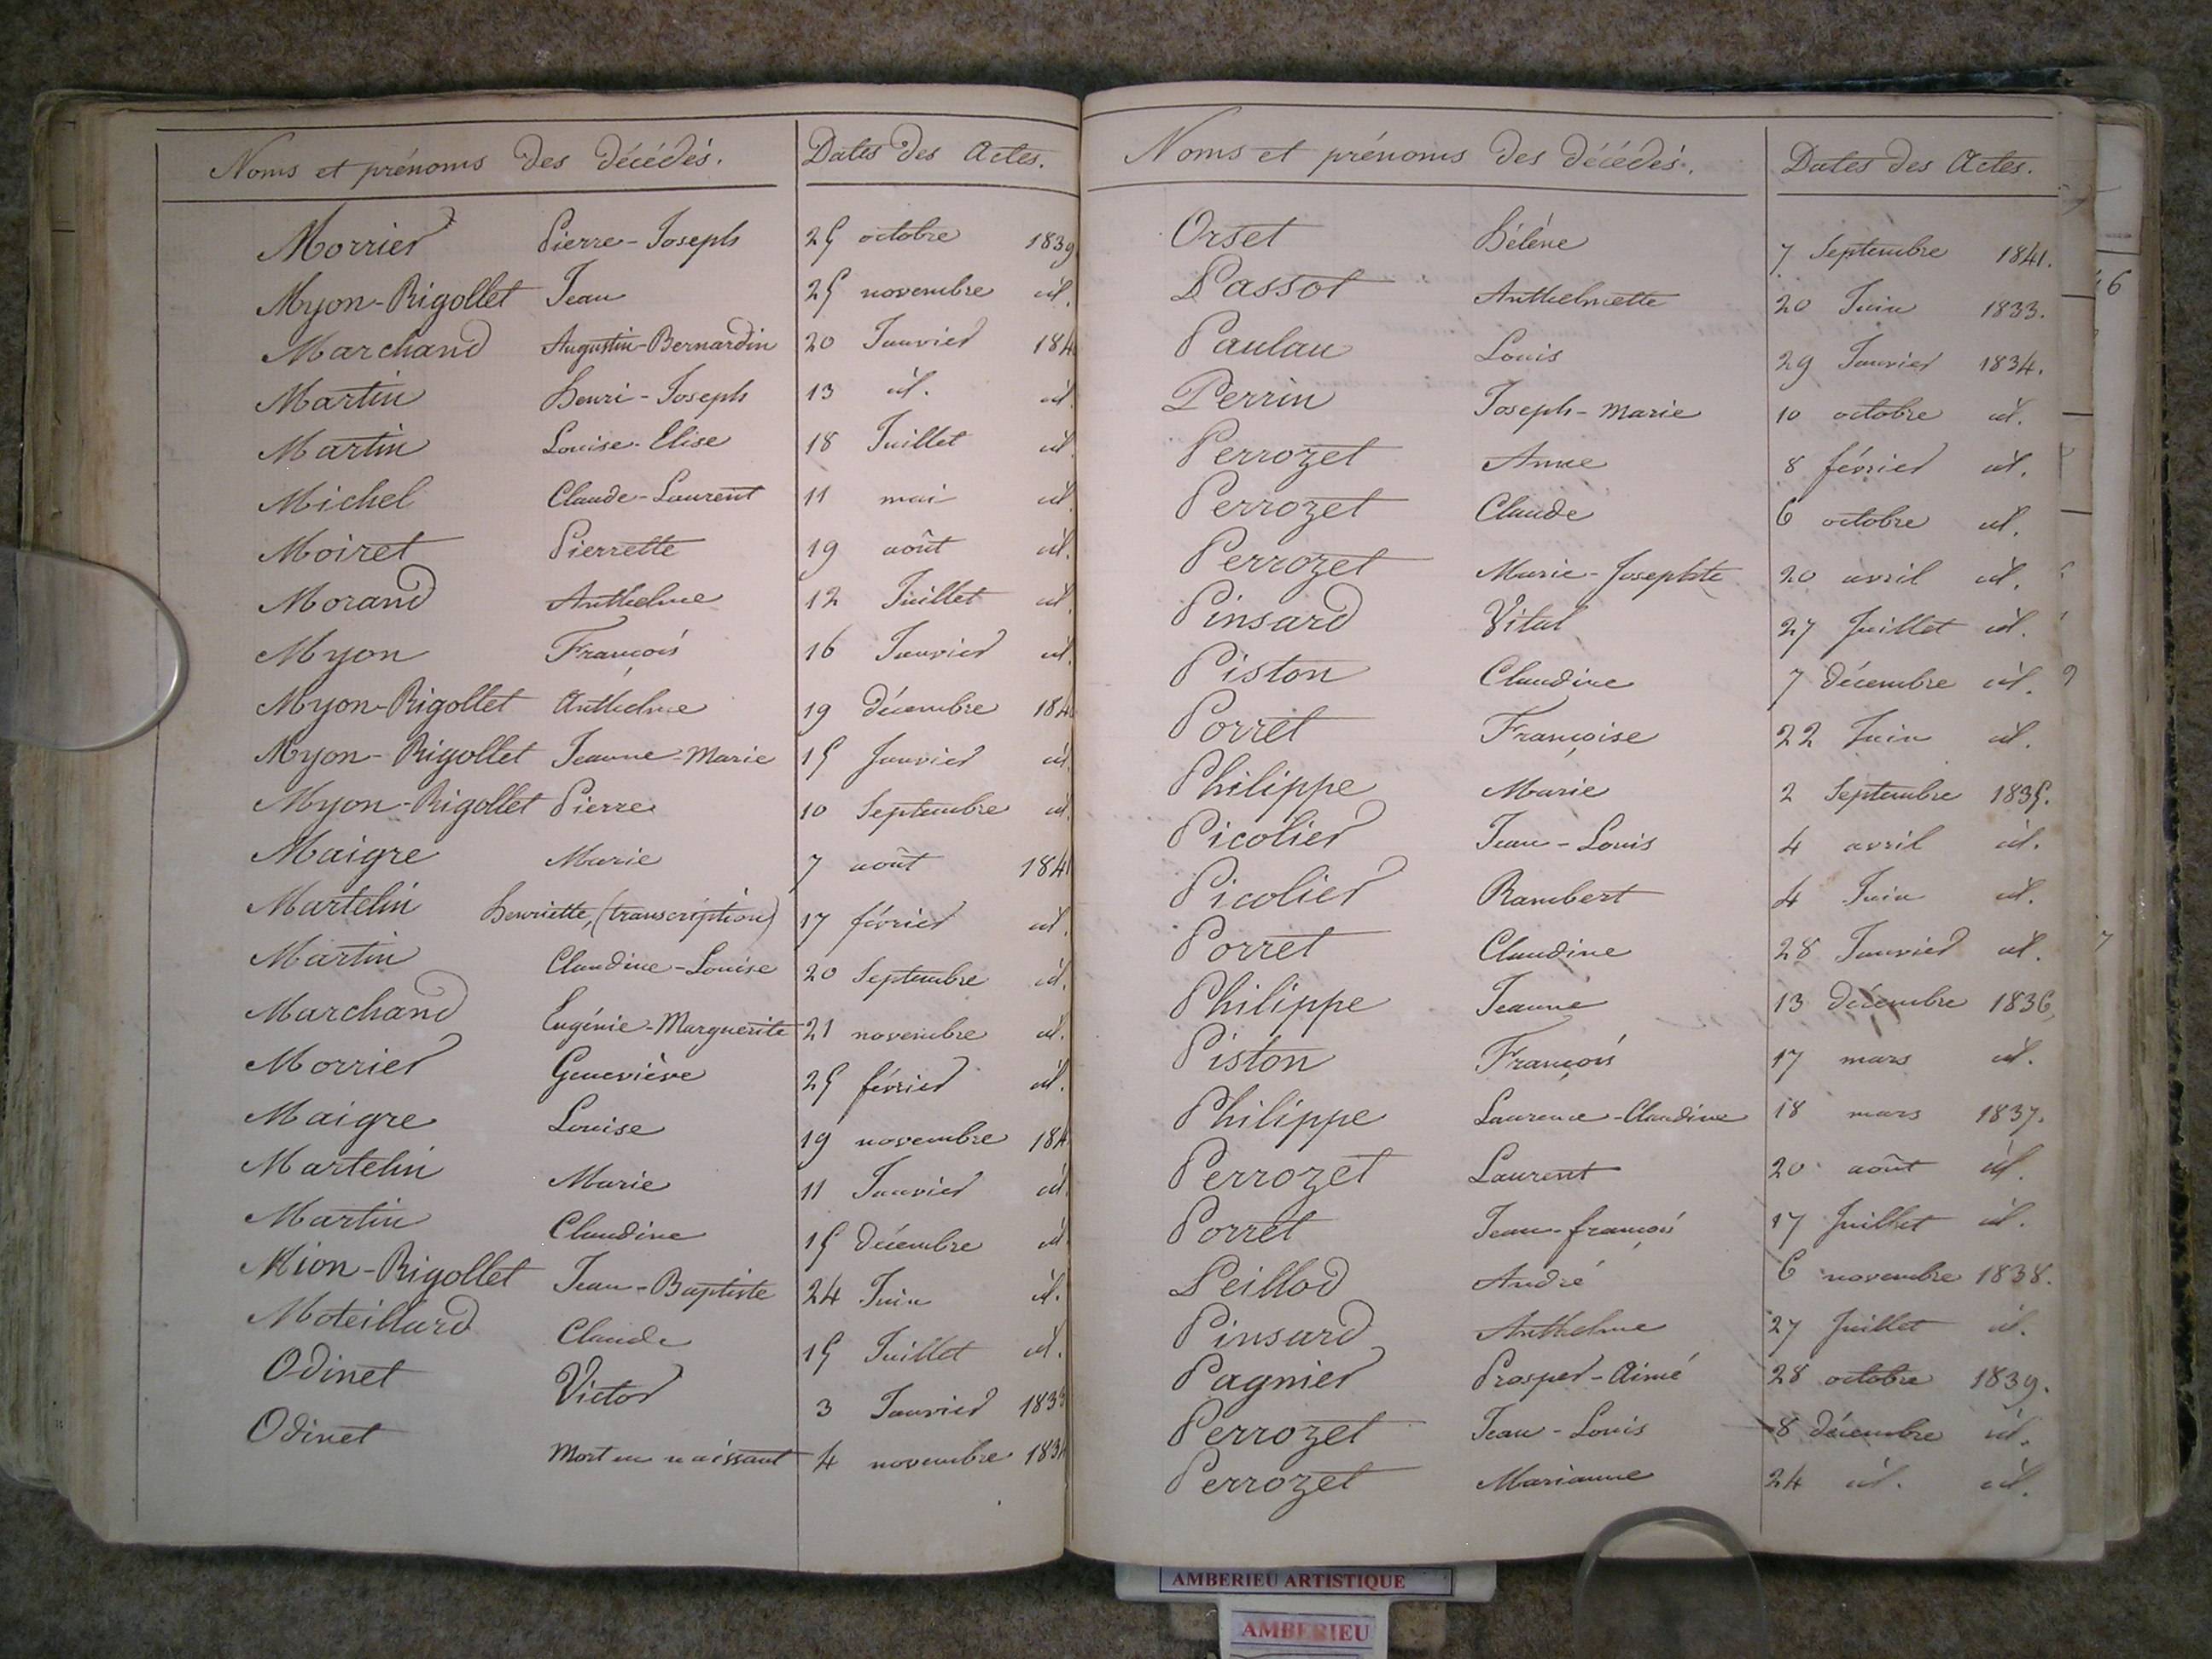 Noms et prénoms des décédés. Dates des Actes.
Morrier Pierre-Joseph 25 octobre 1839
Myon-Rigollet Jean 25 novembre id.
Marchand Augustin-Bernardin 20 Janvier 184
Martin henri-Joseph 13 id. id.
Martin Louise-Elise 18 Juillet id.
Michel Claude-Laurent 11 mai id.
Moiret Pierrette 19 août id.
Morand Anthelme 12 Juillet id.
Myon François 16 Janvier id.
Myon-Rigollet Anthelme 19 décembre 184
Myon-Rigollet Jeanne-Marie 15 Janvier id.
Myon-Rigollet Pierre 10 Septembre id.
Maigre Marie 7 août 184
Martelin henriette, (transcription) 17 février id.
Martin Claudine-Louise 20 Septembre id.
Marchand Eugénie-Marguerite 21 novembre id.
Morrier Geneviève 25 février id.
Maigre Louise 19 novembre 184
Martelin Marie 11 Janvier id.
Martin Claudine 15 décembre id.
Mion-Rigollet Jean-Baptiste 24 Juin id.
Moteillard Claude 15 Juillet id.
Odinet Victor 3 Janvier 183
Odinet Mort en naissant 4 novembre 183
Noms et prénoms des décédés. Dates des Actes.
Orset hélène 7 Septembre 1841.
Passot Anthelmette 20 Juin 1833.
Paulan Louis 29 Janvier 1834.
Perrin Joseph-Marie 10 octobre id.
Perrozet Anne 8 février id.
Perrozet Claude 6 octobre id.
Perrozet Marie-Josephte 20 avril id.
Pinsard Vital 27 Juillet id.
Piston Claudine 7 décembre id.
Porret Françoise 22 Juin id.
Philippe Marie 2 Septembre 1835.
Picolier Jean-Louis 4 avril id.
Picolier Rambert 4 Juin id.
Porret Claudine 28 Janvier id.
Philippe Jeanne 13 décembre 1836.
Piston François 17 mars id.
Philippe Laurence-Claudine 18 mars 1837.
Perrozet Laurent 20 août id.
Porret Jean-françois 17 Juillet id.
Peillod André 6 novembre 1838.
Pinsard Anthelme 27 Juillet id.
Pagnier Prosper-Aimé 28 octobre 1839.
Perrozet Jean-Louis 8 décembre id.
Perrozet Marianne 24 id. id.
AMBERIEU ARTISTIQUE
AMBERIEU